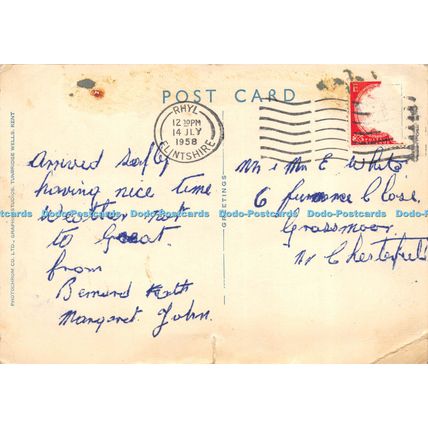 POST CARD
RHYL
12 30PM
14 JLY
1958
FLINTSHIRE
Arrived safly
having nice time
Weather not
to Great.
from
Bernard Keith
Margaret John.
GREETINGS
PHOTOCHROM CO. LTD., GRAPHIC STUDIOS, TUNBRIDGE WELLS, KENT
Mr & Mrs E White
6 furnace Close.
Grassmoor.
Nr Chesterfield
Dodo-Postcards Dodo-Postcards Dodo-Postcards Dodo-Postcards Dodo-Postcards